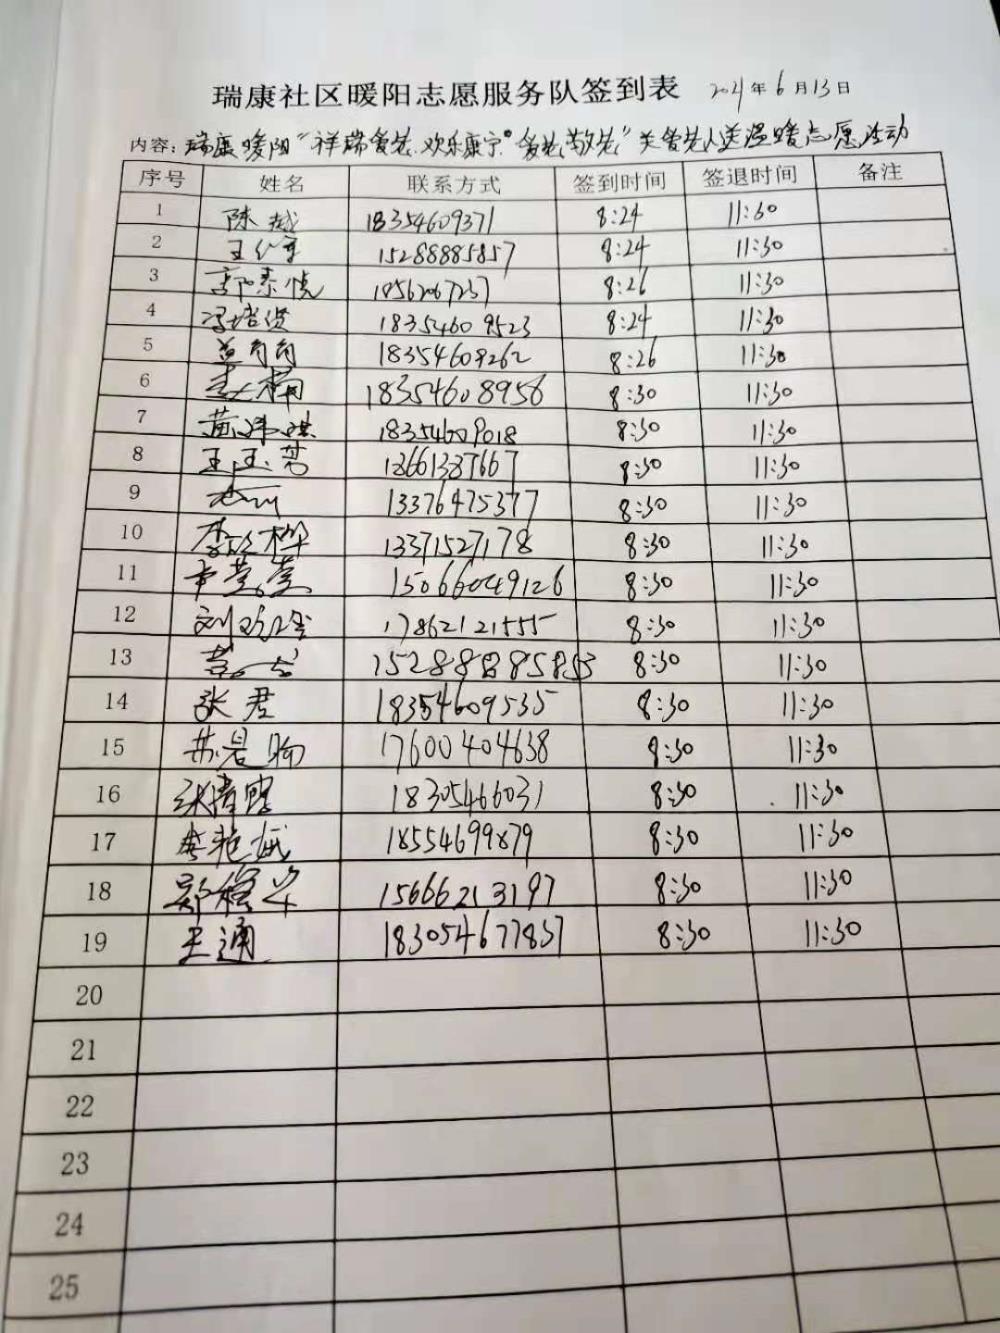 瑞康社区暖阳志愿服务队签到表 2021年6月13日
内容：瑞康暖阳“祥瑞爱老.欢乐康宁”“爱老敬老”关爱老人送温暖志愿活动
序号 姓名 联系方式 签到时间 签退时间 备注
1 陈越 18354609371 8:24 11:30
2 王 15288885857 8:24 11:30
3 郭素悦 8:26 11:30
4 冯培贤 18354609523 8:24 11:30
5 18354609262 8:26 11:30
6 18354608956 8:30 11:30
7 黄 18354609018 8:30 11:30
8 王玉茗 8:30 11:30
9 13376475377 8:30 11:30
10 李欣桦 13371527178 8:30 11:30
11 15066049126 8:30 11:30
12 刘 17862121555 8:30 11:30
13 8:30 11:30
14 张君 18354609535 8:30 11:30
15 苏晨昫 17600404638 8:30 11:30
16 18305466031 8:30 11:30
17 李艳斌 18554699879 8:30 11:30
18 郑 15666213197 8:30 11:30
19 王通 183054677837 8:30 11:30
20
21
22
23
24
25